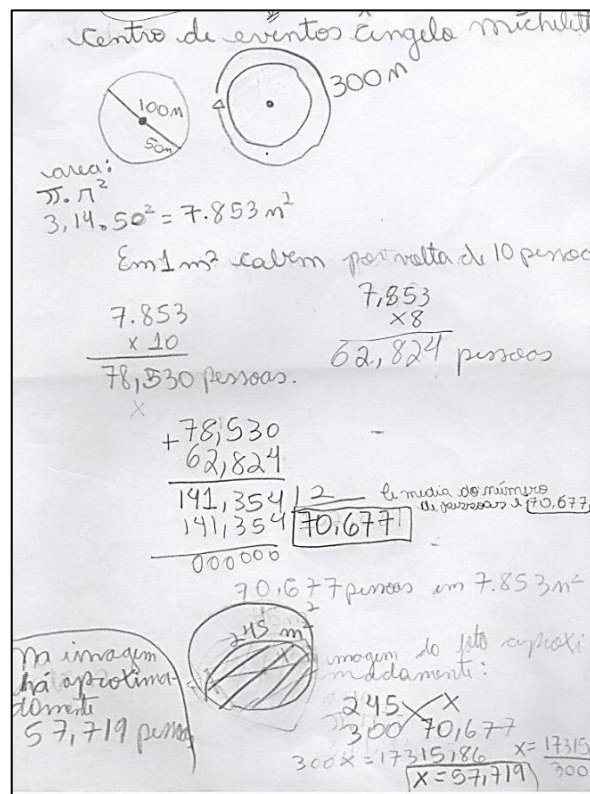 Centro de eventos Ângelo Michelett
100m
50m
300m
area:
π.r²
3,14.50² = 7.853 m²
Em 1 m² cabem por volta de 10 pessoa
7.853
x 10
78,530 pessoas.
x
7,853
x8
62,824 pessoas
+78,530
62,824
141,354 | 2
141,354 70,677
000000
A media do número
de pessoas é 70,677
70,677 pessoas em 7.853m²
245 m²
Na imagem
há aproxima-
damente
57,719 pessoas
imagem da foto aproxi
madamente:
245 x
300 70,677
300x = 17315,86 x = 17315
300
x = 57,719